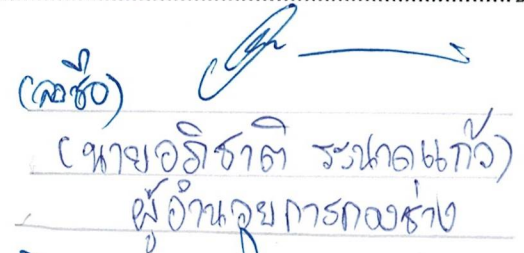 (ลงชื่อ)
(นายอภิชาติ ระนาดแก้ว)
ผู้อำนวยการกองช่าง